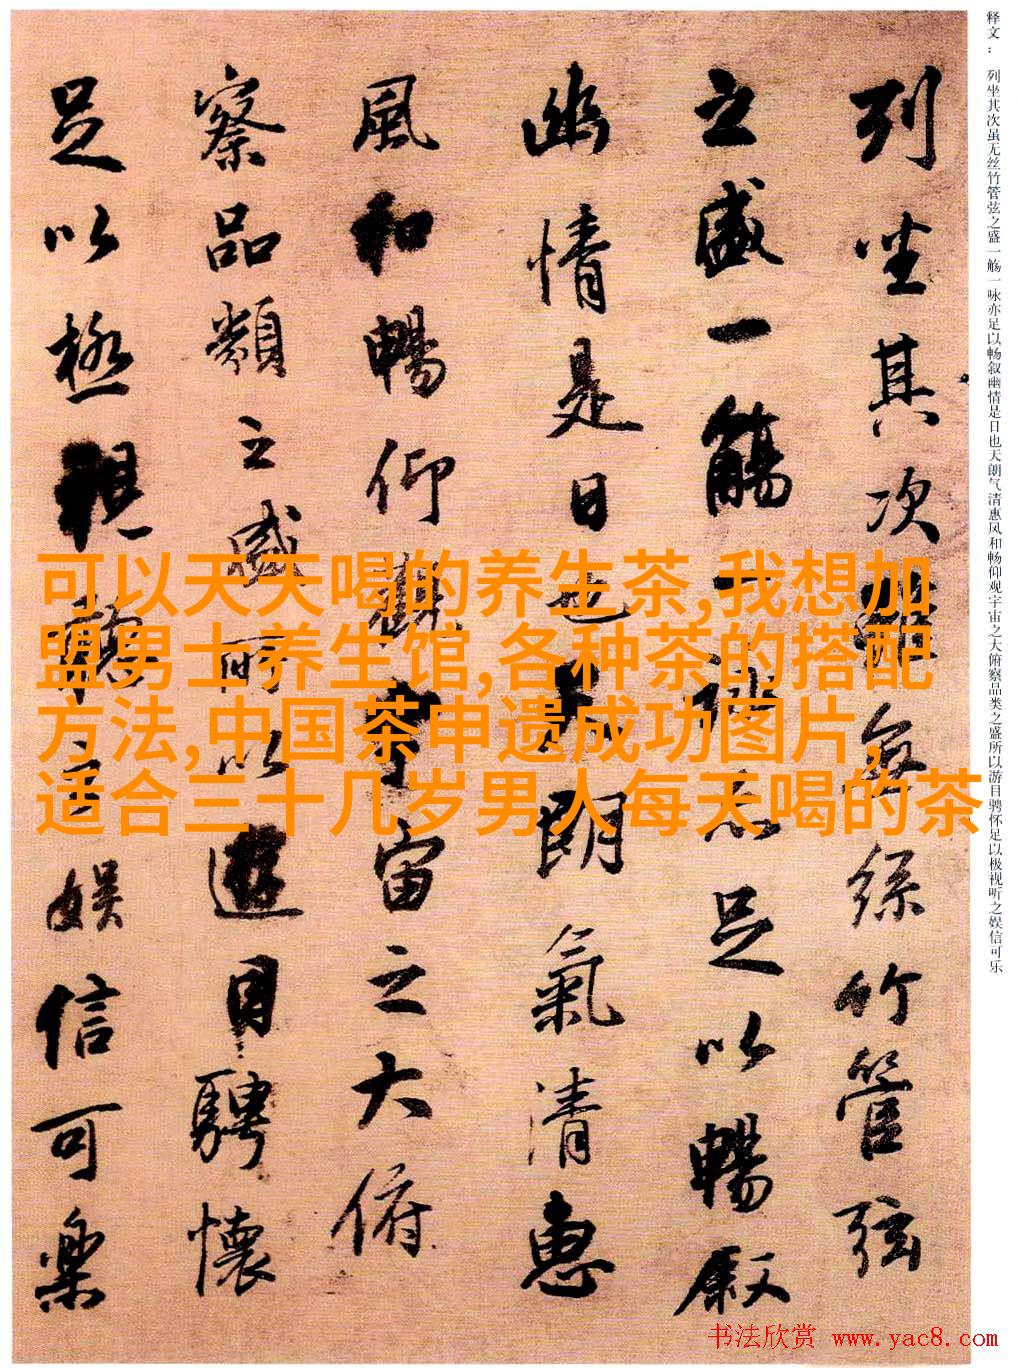 释文： 列坐其次虽无丝竹管弦之盛一觞一咏亦足以畅叙幽情是日也天朗气清惠风和畅仰观宇宙之大俯察品类之盛所以游目骋怀足以极视听之娱信可乐
列坐其次雖無絲竹管弦
之盛一觴一詠亦足以暢叙
幽情是日也天朗氣清惠
風和暢仰觀宇宙之大俯
察品類之盛所以遊目騁懷
足以極視聽之娛信可樂
可以天天喝的养生茶,我想加
盟男士养生馆,各种茶的搭配
方法,中国茶申遗成功图片,
适合三十几岁男人每天喝的茶
书法欣赏 www.yac8.com